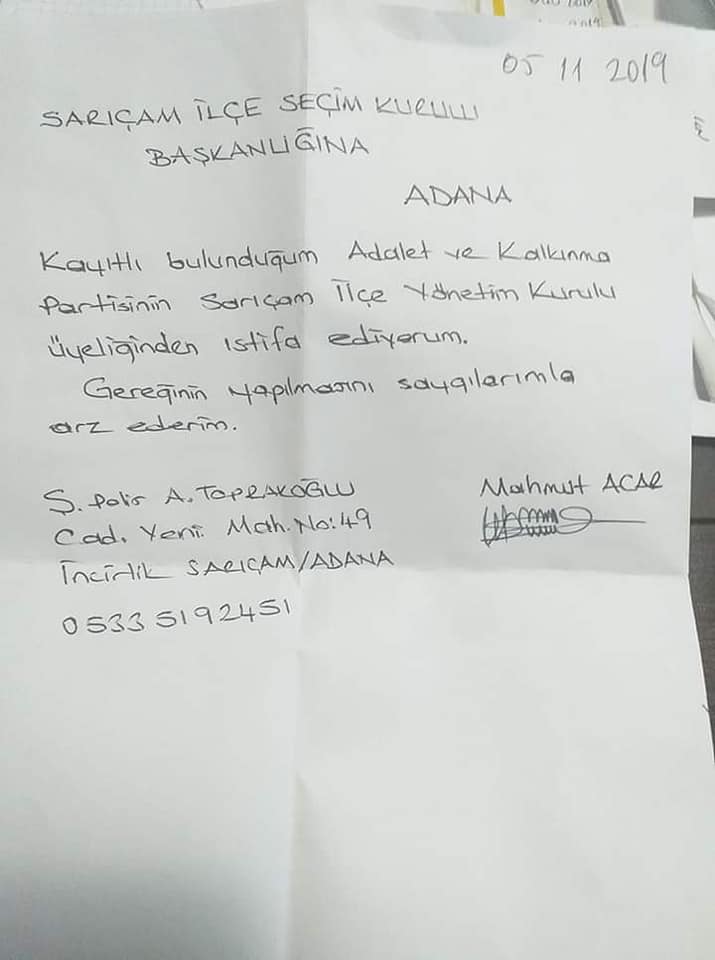 05 11 2019
SARIÇAM İLÇE SEÇİM KURULU
BAŞKANLIĞINA
ADANA
Kayıtlı bulunduğum Adalet ve Kalkınma
Partisinin Sarıçam İlçe Yönetim Kurulu
üyeliğinden istifa ediyorum.
Gereğinin yapılmasını saygılarımla
arz ederim.
Ş. Polis A. TOPRAKOĞLU
Cad. Yeni. Mah. No: 49
İncirlik SARIÇAM/ADANA
0533 5192451
Mahmut ACAR